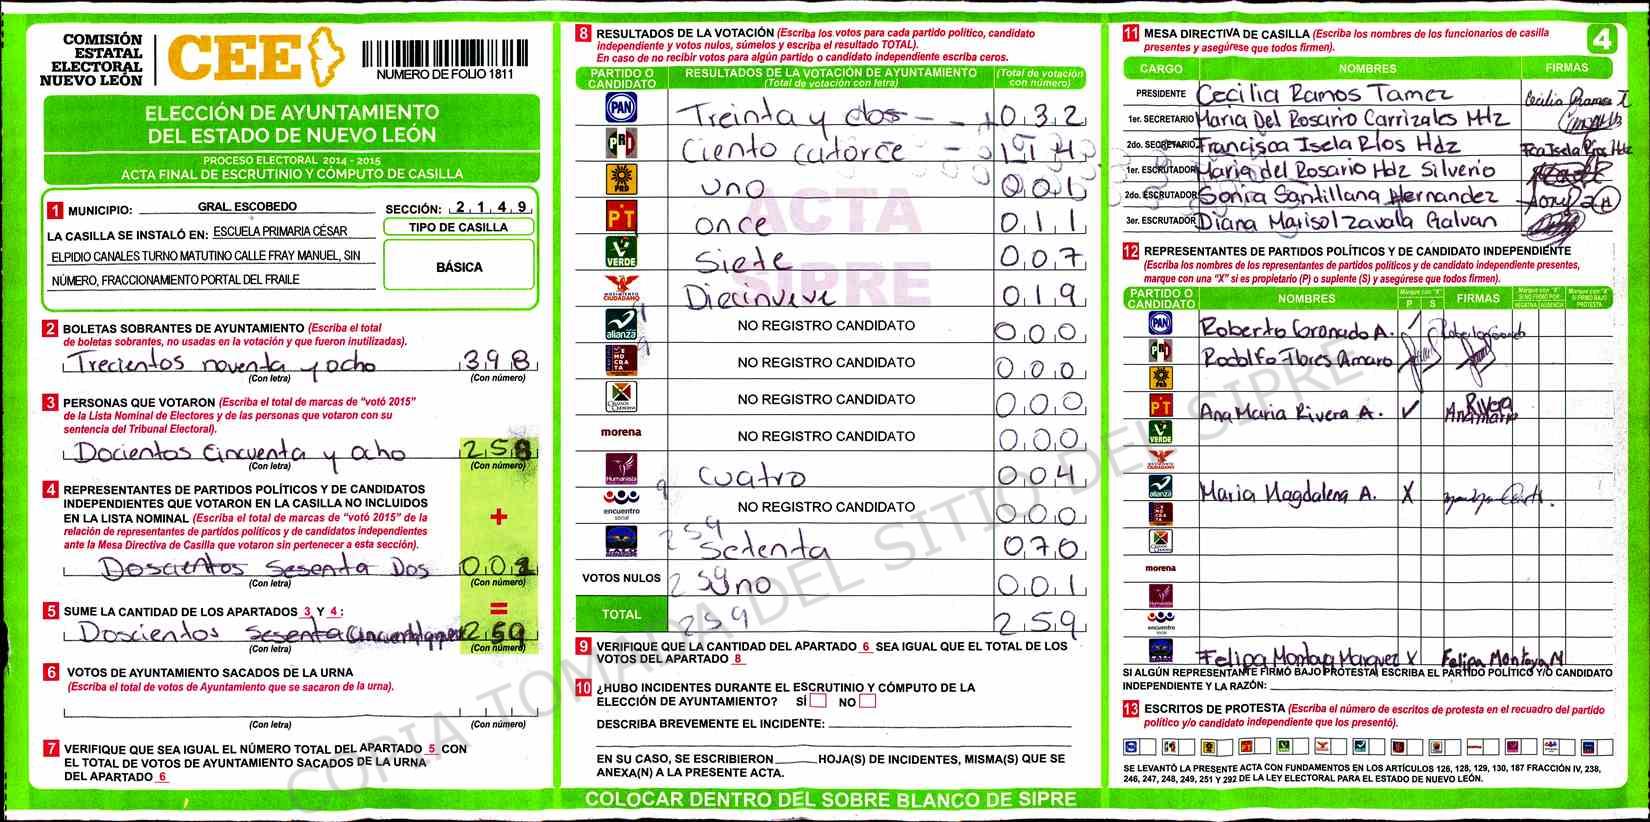 COMISIÓN
ESTATAL
ELECTORAL
NUEVO LEÓN
CEE
NUMERO DE FOLIO 1811
ELECCIÓN DE AYUNTAMIENTO
DEL ESTADO DE NUEVO LEÓN
PROCESO ELECTORAL 2014 - 2015
ACTA FINAL DE ESCRUTINIO Y CÓMPUTO DE CASILLA
1 MUNICIPIO: GRAL. ESCOBEDO SECCIÓN: 2149
LA CASILLA SE INSTALÓ EN: ESCUELA PRIMARIA CÉSAR
ELPIDIO CANALES TURNO MATUTINO CALLE FRAY MANUEL, SIN
NÚMERO, FRACCIONAMIENTO PORTAL DEL FRAILE
TIPO DE CASILLA
BÁSICA
2 BOLETAS SOBRANTES DE AYUNTAMIENTO (Escriba el total
de boletas sobrantes, no usadas en la votación y que fueron inutilizadas).
Trecientos noventa y ocho 398
(Con letra) (Con número)
3 PERSONAS QUE VOTARON (Escriba el total de marcas de “votó 2015”
de la Lista Nominal de Electores y de las personas que votaron con su
sentencia del Tribunal Electoral).
Docientos Cincuenta y ocho 258
(Con letra) (Con número)
4 REPRESENTANTES DE PARTIDOS POLÍTICOS Y DE CANDIDATOS
INDEPENDIENTES QUE VOTARON EN LA CASILLA NO INCLUIDOS
EN LA LISTA NOMINAL (Escriba el total de marcas de “votó 2015” de la
relación de representantes de partidos políticos y de candidatos independientes
ante la Mesa Directiva de Casilla que votaron sin pertenecer a esta sección).
+
Doscientos Sesenta Dos 001
(Con letra) (Con número)
=
5 SUME LA CANTIDAD DE LOS APARTADOS 3 Y 4 :
Doscientos Sesenta 259
(Con letra) (Con número)
6 VOTOS DE AYUNTAMIENTO SACADOS DE LA URNA
(Escriba el total de votos de Ayuntamiento que se sacaron de la urna).
(Con letra) (Con número)
7 VERIFIQUE QUE SEA IGUAL EL NÚMERO TOTAL DEL APARTADO 5 CON
EL TOTAL DE VOTOS DE AYUNTAMIENTO SACADOS DE LA URNA
DEL APARTADO 6
8 RESULTADOS DE LA VOTACIÓN (Escriba los votos para cada partido político, candidato
independiente y votos nulos, súmelos y escriba el resultado TOTAL).
En caso de no recibir votos para algún partido o candidato independiente escriba ceros.
PARTIDO O CANDIDATO RESULTADOS DE LA VOTACIÓN DE AYUNTAMIENTO (Total de votación con letra) (Total de votación con número)
PAN Treinta y dos 032
PRD Ciento catorce 114
PRD uno 001
PT once 011
VERDE Siete 007
MOVIMIENTO CIUDADANO Diecinueve 019
alianza NO REGISTRO CANDIDATO 000
DEMOCRATA NO REGISTRO CANDIDATO 000
NO REGISTRO CANDIDATO 000
morena NO REGISTRO CANDIDATO 000
Humanista cuatro 004
encuentro social NO REGISTRO CANDIDATO 000
259
Setenta 070
VOTOS NULOS 259 uno 001
TOTAL 259 259
ACTA
SIPRE
9 VERIFIQUE QUE LA CANTIDAD DEL APARTADO 6 SEA IGUAL QUE EL TOTAL DE LOS
VOTOS DEL APARTADO 8
10 ¿HUBO INCIDENTES DURANTE EL ESCRUTINIO Y CÓMPUTO DE LA
ELECCIÓN DE AYUNTAMIENTO? SÍ NO
DESCRIBA BREVEMENTE EL INCIDENTE:
EN SU CASO, SE ESCRIBIERON HOJA(S) DE INCIDENTES, MISMA(S) QUE SE
ANEXA(N) A LA PRESENTE ACTA.
COLOCAR DENTRO DEL SOBRE BLANCO DE SIPRE
11 MESA DIRECTIVA DE CASILLA (Escriba los nombres de los funcionarios de casilla
presentes y asegúrese que todos firmen).
4
CARGO NOMBRES FIRMAS
PRESIDENTE Cecilia Ramos Tamez Cecilia Ramos T
1er. SECRETARIO Maria Del Rosario Carrizales Hdz
2do. SECRETARIO Francisca Isela Ríos Hdz Fca Isela Ríos Hdz
1er. ESCRUTADOR Maria del Rosario Hdz Silverio
2do. ESCRUTADOR Sonia Santillana Hernandez
3er. ESCRUTADOR Diana Marisol Zavala Galvan
12 REPRESENTANTES DE PARTIDOS POLÍTICOS Y DE CANDIDATO INDEPENDIENTE
(Escriba los nombres de los representantes de partidos políticos y de candidato independiente presentes,
marque con una “X” si es propietario (P) o suplente (S) y asegúrese que todos firmen).
PARTIDO O CANDIDATO NOMBRES Marque con “X” P S FIRMAS Marque con “X” SI NO FIRMÓ POR: NEGATIVA AUSENCIA Marque con “X” SI FIRMÓ BAJO PROTESTA
PAN Roberto Coronado A. Roberto Coronado
PRD Rodolfo Flores Amaro
PRD
PT Ana Maria Rivera A. ✓ Ana Maria Rivera
VERDE
alianza Maria Magdalena A. X
morena
encuentro social
Felipa Montoya Marquez X Felipa Montoya M
SI ALGÚN REPRESENTANTE FIRMÓ BAJO PROTESTA, ESCRIBA EL PARTIDO POLÍTICO Y/O CANDIDATO
INDEPENDIENTE Y LA RAZÓN:
13 ESCRITOS DE PROTESTA (Escriba el número de escritos de protesta en el recuadro del partido
político y/o candidato independiente que los presentó).
SE LEVANTÓ LA PRESENTE ACTA CON FUNDAMENTOS EN LOS ARTÍCULOS 126, 128, 129, 130, 187 FRACCIÓN IV, 238,
246, 247, 248, 249, 251 Y 292 DE LA LEY ELECTORAL PARA EL ESTADO DE NUEVO LEÓN.
COPIA TOMADA DEL SITIO DEL SIPRE